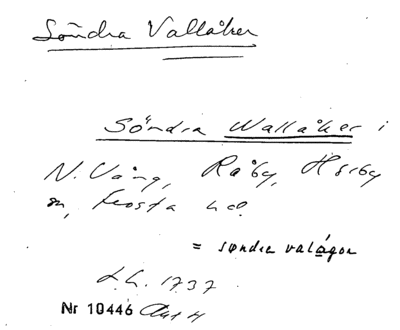 Söndra Vallåker
Söndra Wallåker i
N. Vång, Råby, Hörby
sn, Frosta hd.
= søndre valågor
L.h. 1737
Nr 10446 Akt 4